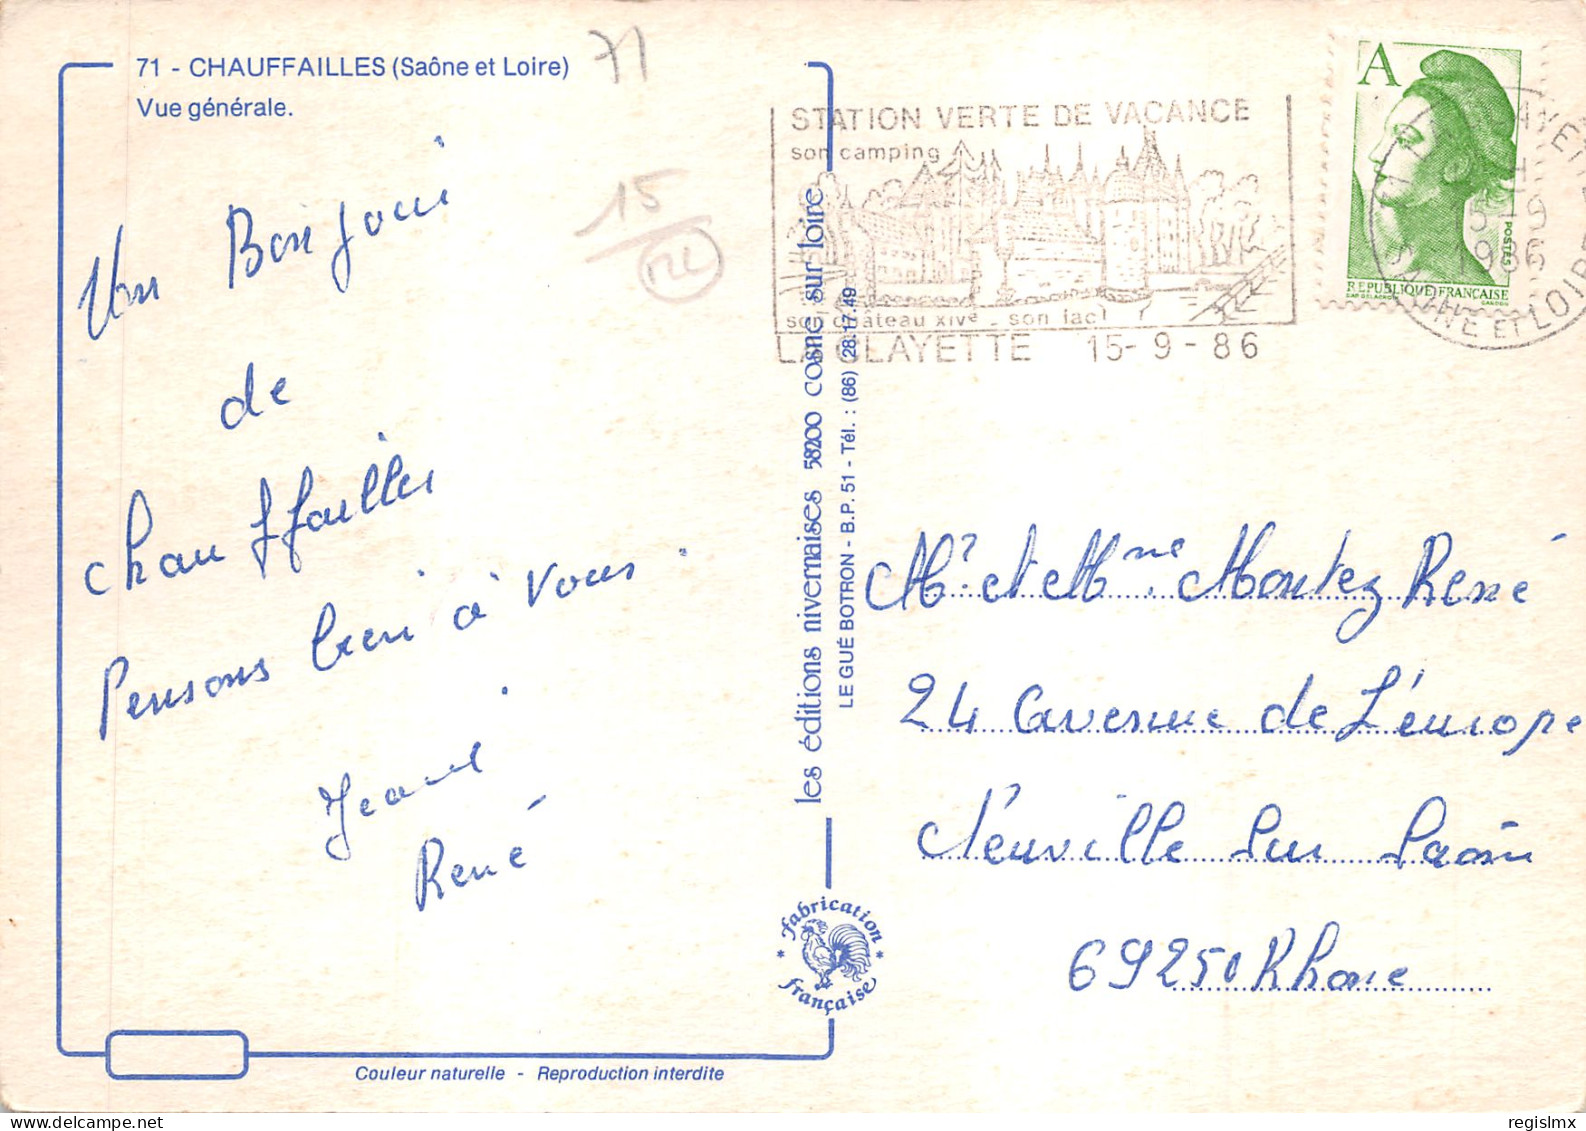 71 - CHAUFFAILLES (Saône et Loire)
Vue générale.
71
15
Un Bonjour
de
Chauffailles
Pensons bien à vous.
Jeanne
René
STATION VERTE DE VACANCE
son camping
son château XIVe - son lac
LA CLAYETTE 15-9-86
A
POSTES
REPUBLIQUE FRANÇAISE
1986
SAONE ET LOIRE
les éditions nivernaises 58200 cosne sur loire
LE GUÉ BOTRON - B.P. 51 - Tél. : (86) 28.17.49
Mr. et Mme. Montez René
24 avenue de L'europe
Neuville sur Saône
69250 Rhone
fabrication
française
Couleur naturelle - Reproduction interdite
regislmx